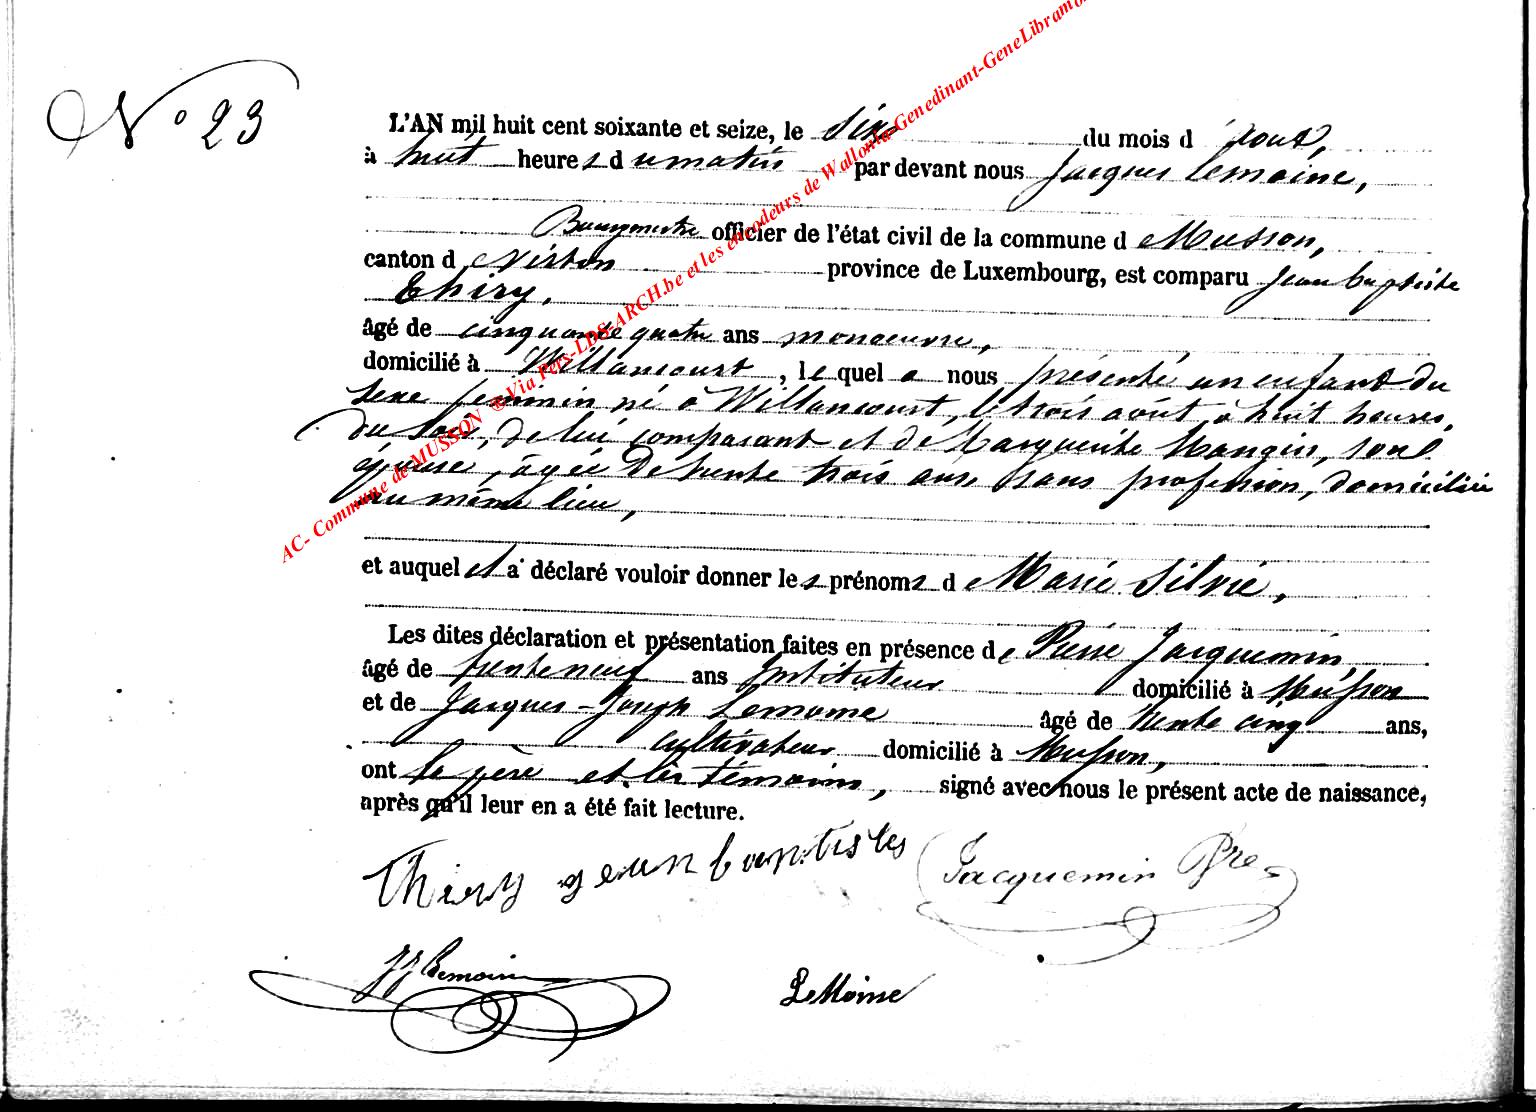 N° 23
L'AN mil huit cent soixante et seize, le six du mois d'août,
à huit heures du matin par devant nous Jacques Lemoine,
Bourgmestre officier de l'état civil de la commune d Musson,
canton d Virton province de Luxembourg, est comparu Jean baptiste
Thiry,
âgé de cinquante quatre ans manoeuvre,
domicilié à Willancourt, le quel a nous présenté un enfant du
sexe féminin né à Willancourt, le trois août à huit heures,
du soir, de lui comparant et de Marguerite Mangin, son
épouse, âgée de trente trois ans, sans profession, domiciliée
au même lieu,
et auquel il a déclaré vouloir donner les prénoms d Marie Silvie,
Les dites déclaration et présentation faites en présence de Pierre Jacquemin,
âgé de trente neuf ans Instituteur domicilié à Musson
et de Jacques-Joseph Lemoine âgé de trente cinq ans,
cultivateur domicilié à Musson,
ont le père et les témoins, signé avec nous le présent acte de naissance,
après qu'il leur en a été fait lecture.
Thiry jean baptistes
Jacquemin Pre
JJ Lemoine
LeMoine
AC- Commune de MUSSON ®Via Pers-LDS-ARCH.be et les encodeurs de Wallonia-Genedinant-GeneLibramo